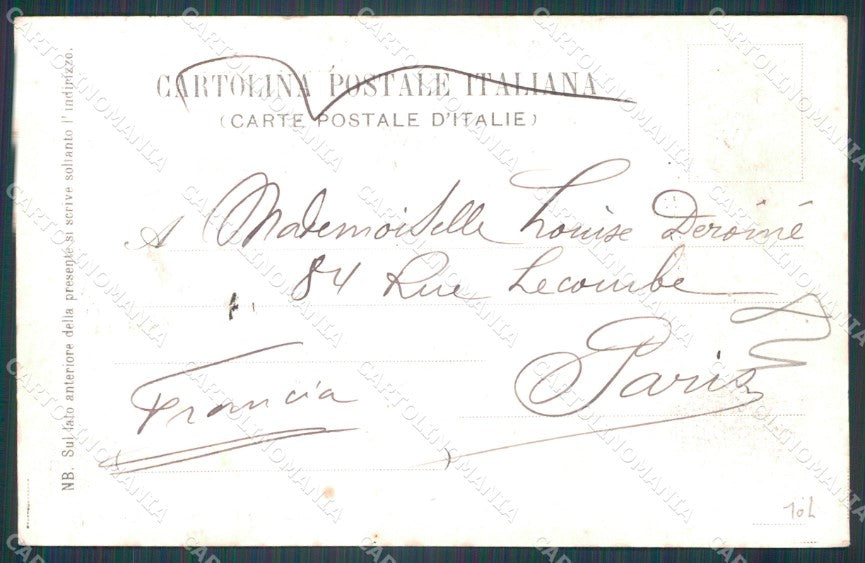 CARTOLINA POSTALE ITALIANA
(CARTE POSTALE D'ITALIE)
A Mademoiselle Louise Deroiné
84 Rue Lecombe
Paris
Francia
NB. Sul lato anteriore della presente si scrive soltanto l'indirizzo.
10L
CARTOLINOMANIA